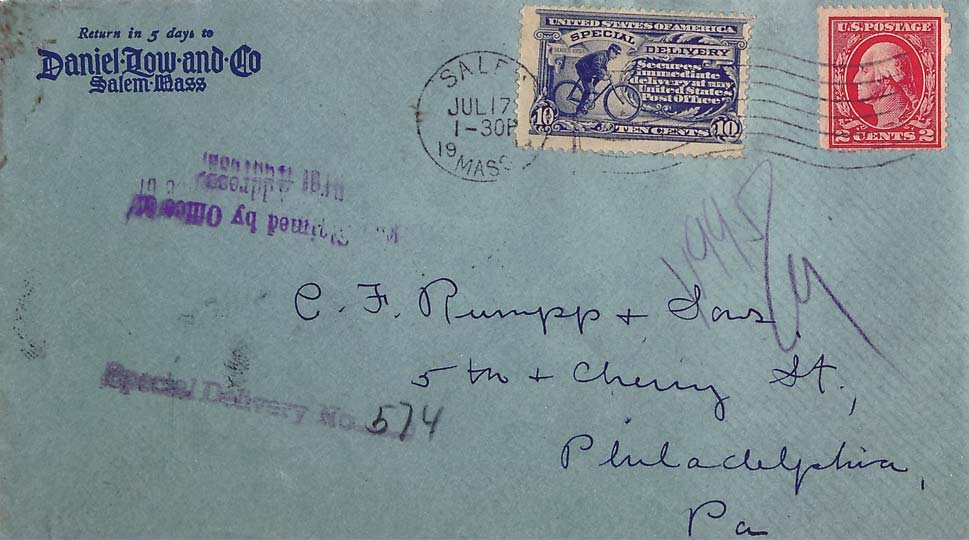 Return in 5 days to
Daniel·Low·and·Co
Salem·Mass
UNITED STATES OF AMERICA
SPECIAL DELIVERY
Secures
immediate
delivery at any
United States
Post Office
10 TEN CENTS 10
U.S. POSTAGE
2 CENTS 2
JUL 17
1-30P
19
MASS
by Office
Address
C. F. Rumpp & Sons
5th & Cherry St.,
Special Delivery No. 574
Philadelphia,
Pa